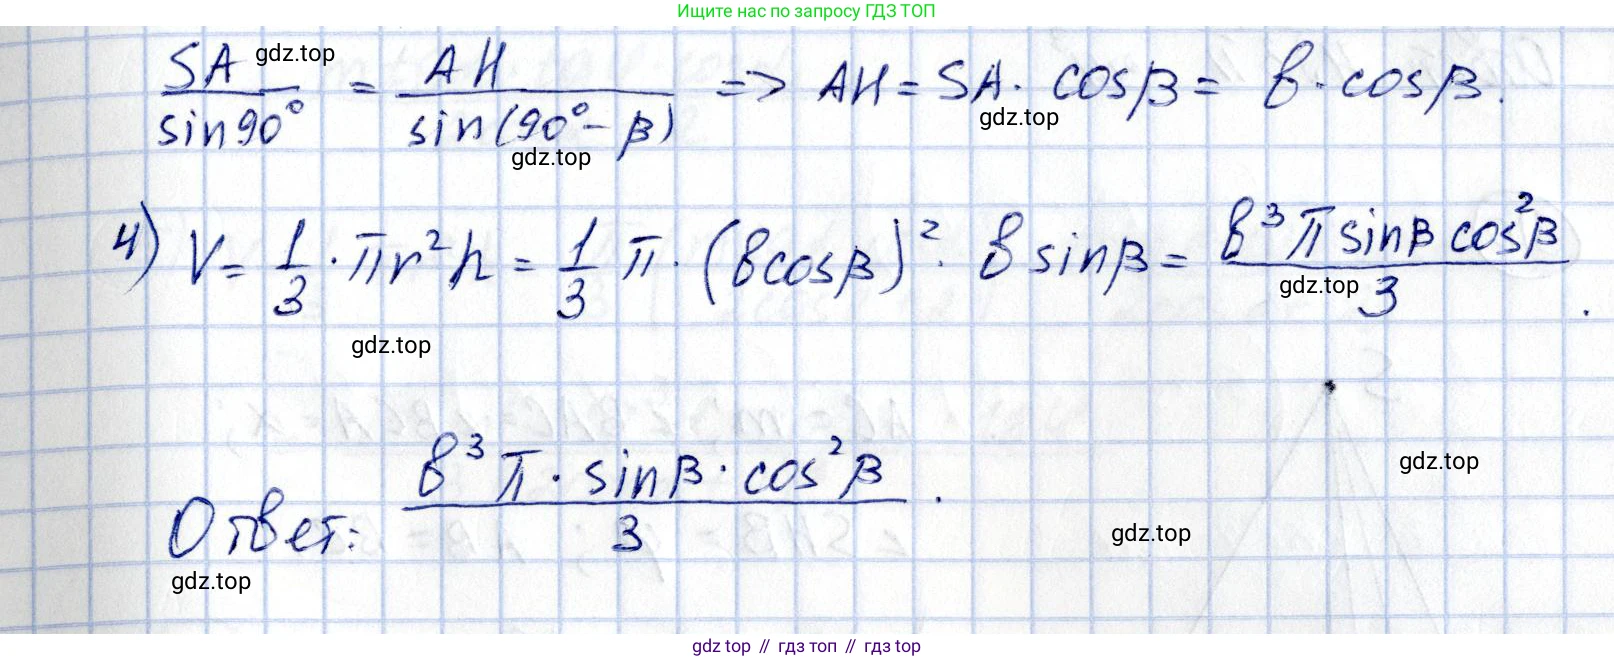 Ищите нас по запросу ГДЗ ТОП
SA / sin90° = AH / sin(90°-β) => AH = SA · cosβ = в · cosβ.
gdz.top
gdz.top
gdz.top
4) V = 1/3 · πr²h = 1/3 π · (вcosβ)² · в sinβ = в³π sinβ cos²β / 3.
gdz.top
gdz.top
Ответ: в³π · sinβ · cos²β / 3.
gdz.top
gdz.top
gdz.top
gdz top // гдз топ // gdz top